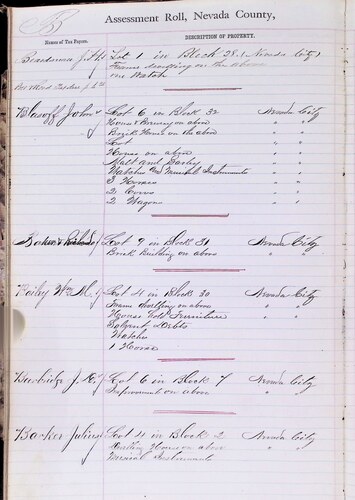 B
Assessment Roll, Nevada County,
Names of Tax Payers.
DESCRIPTION OF PROPERTY.
Lot 1 in Block 28 (Nevada City)
Frame dwelling on the above
one Watch
John Lot 6 in Block 32 Nevada City
House & Brewery on above " "
Brick House on the above " "
Lot " "
House on above " "
Malt and Barley " "
Watches and Musical Instruments " "
3 Horses " "
2 Cows " "
2 Wagons " "
Lot 9 in Block 31 Nevada City
Brick Building on above " "
Baily Wm M. Lot 4 in Block 30 Nevada City
Frame dwelling on above " "
House hold Furniture "
Solvent Debts
Watches
1 Horse
Burbidge J. Lot 6 in Block 7 Nevada City
Improvements on above " "
Backer Julius Lot 4 in Block 2 Nevada City
House on above "
Musical Instruments "